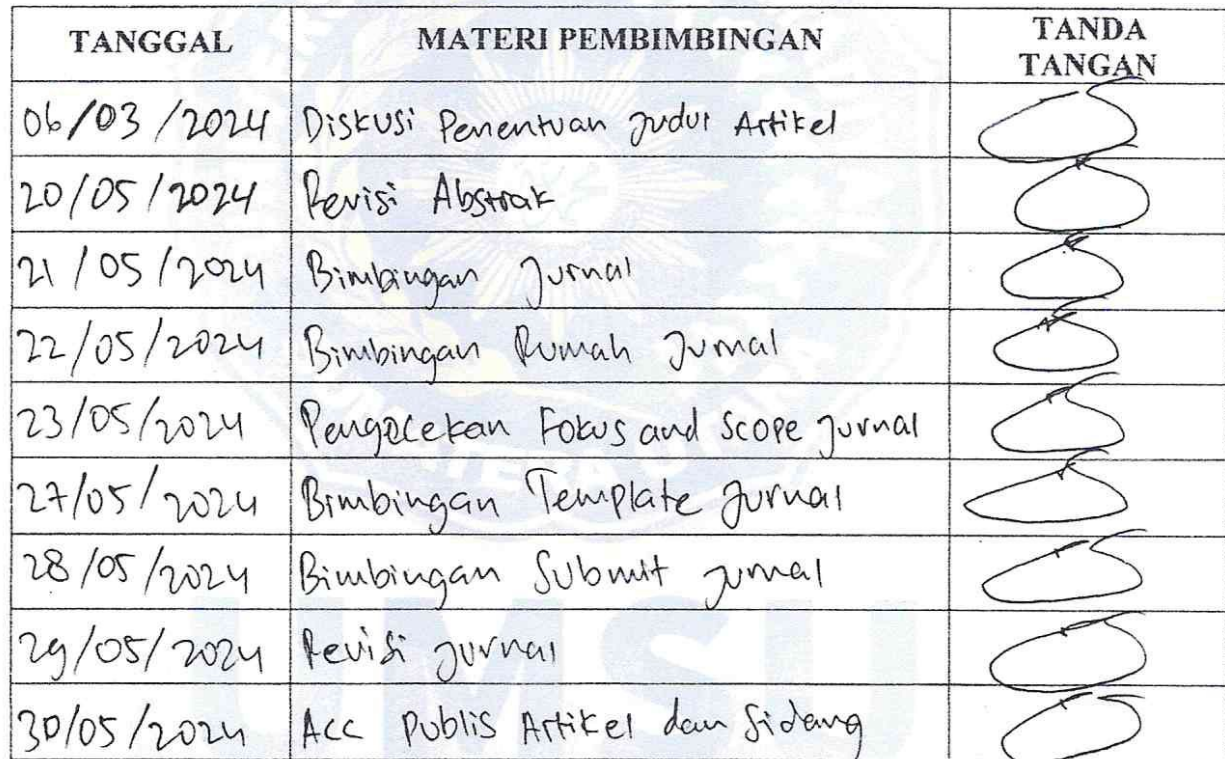 TANGGAL MATERI PEMBIMBINGAN TANDA TANGAN
06/03/2024 Diskusi Penentuan Judul Artikel
20/05/2024 Revisi Abstrak
21/05/2024 Bimbingan Jurnal
22/05/2024 Bimbingan Rumah Jurnal
23/05/2024 Pengecekan Fokus and Scope Jurnal
27/05/2024 Bimbingan Template Jurnal
28/05/2024 Bimbingan Submit Jurnal
29/05/2024 Revisi Jurnal
30/05/2024 Acc Publis Artikel dan Sidang
UMSU